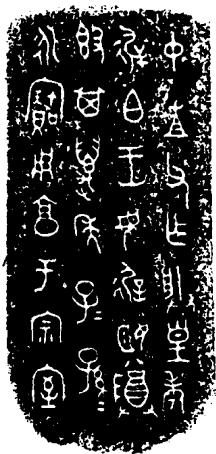 中父乍朕皇考
遟白王母遟姬𬯚
𣪘其萬年子=孫=
永寶用亯于宗室